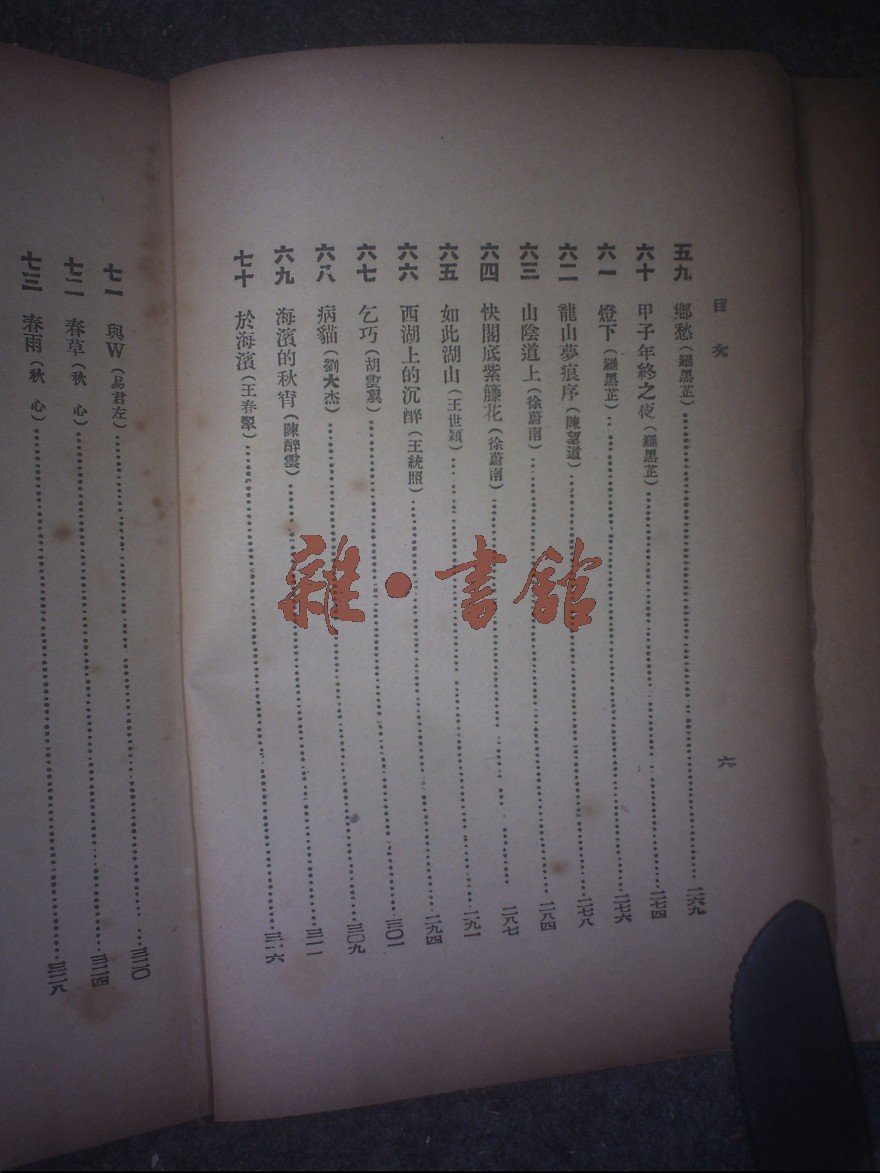 目次
六
五九 鄉愁(羅黑芷)……二六九
六十 甲子年終之夜(羅黑芷)……二七四
六一 燈下(羅黑芷)……二七六
六二 龍山夢痕序(陳望道)……二七八
六三 山陰道上(徐蔚南)……二八四
六四 快閣底紫籐花(徐蔚南)……二八七
六五 如此湖山(王世穎)……二九一
六六 西湖上的沉醉(王統照)……二九四
六七 乞巧(胡雲翼)……三〇一
六八 病貓(劉大杰)……三〇九
六九 海濱的秋宵(陳醉雲)……三一一
七十 於海濱(王春翠)……三一六
七一 與W(易君左)……三二〇
七二 春草(秋心)……三二四
七三 春雨(秋心)……三二八
雜·書館